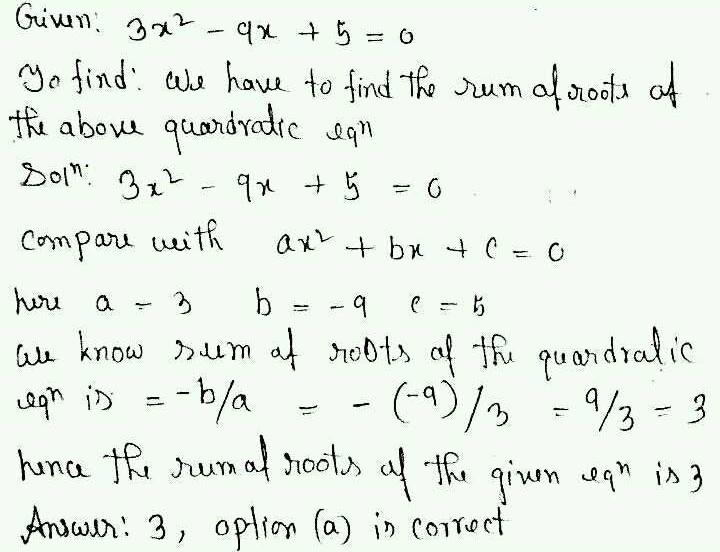 Given: 3x² - 9x + 5 = 0
To find: We have to find the sum of roots of
the above quardratic eqn
Solⁿ: 3x² - 9x + 5 = 0
Compare with ax² + bx + c = 0
here a = 3 b = -9 c = 5
We know sum of roots of the quardratic
eqn is = -b/a = - (-9)/3 = 9/3 = 3
hence the sum of roots of the given eqn is 3
Answer: 3, option (a) is correct